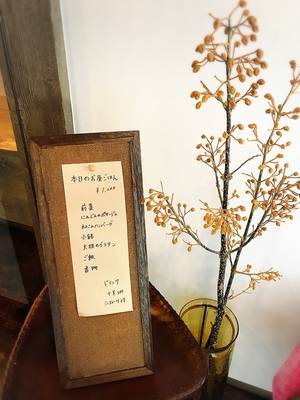 本日のお昼ごはん
¥1,000
前菜
にんじんのポタージュ
れんこんハンバーグ
小鉢
大根のグラタン
ご飯
香物
ドリンク